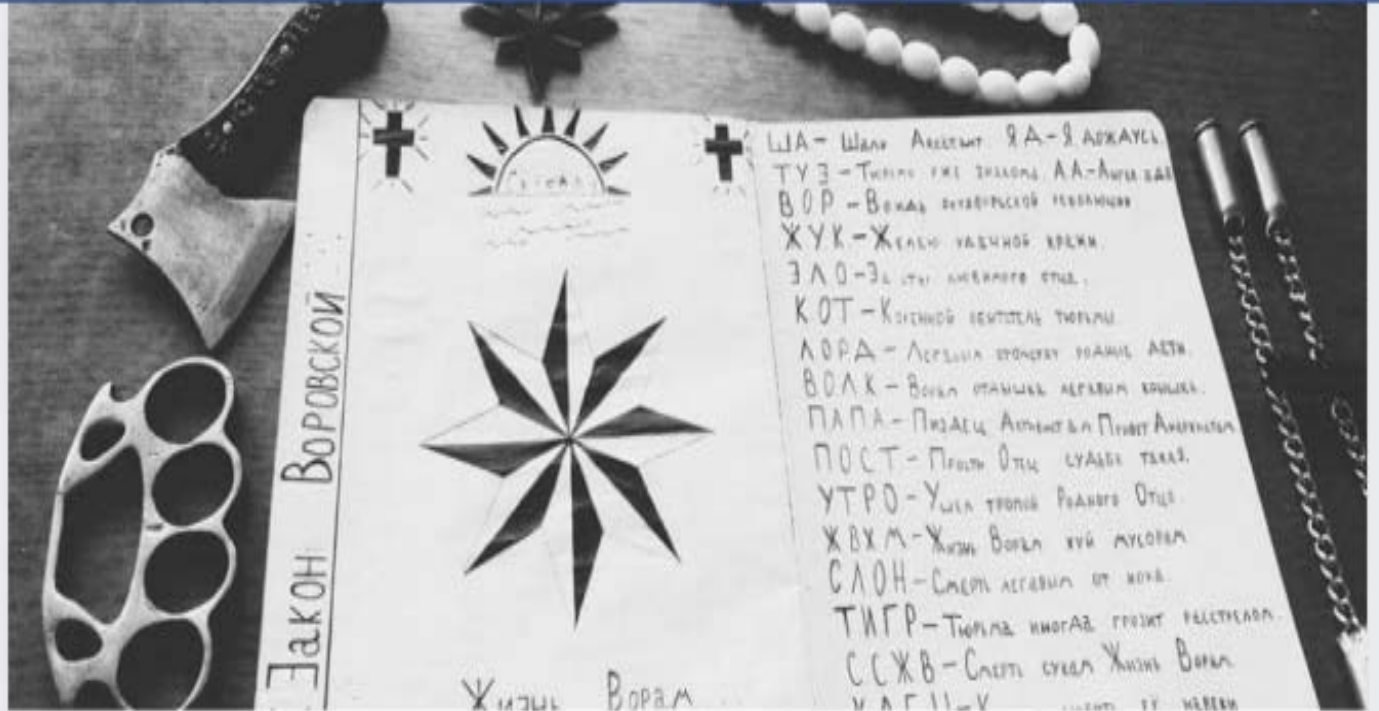 Закон Воровской
Жизнь Ворам
ША – Шалю
ТУЗ – Тюрьма уже знакома. АА –
ВОР – Вождь октябрьской революции
ЖУК – Желаю удачной кражи.
ЗЛО – За любимого отца.
КОТ – Коренной обитатель тюрьмы.
ЛОРД – Легавым отомстят родные дети.
ВОЛК – Ворам отдышка легавым крышка.
ПАПА – Пиздец Активистам Привет Анархистам
ПОСТ – Прости Отец судьба такая.
УТРО – Ушел тропой Родного Отца
ЖВХМ – Жизнь Ворам хуй мусорам
СЛОН – Смерть легавым от ножа.
ТИГР – Тюрьма иногда грозит расстрелом.
ССЖВ – Смерть сукам Жизнь Ворам.